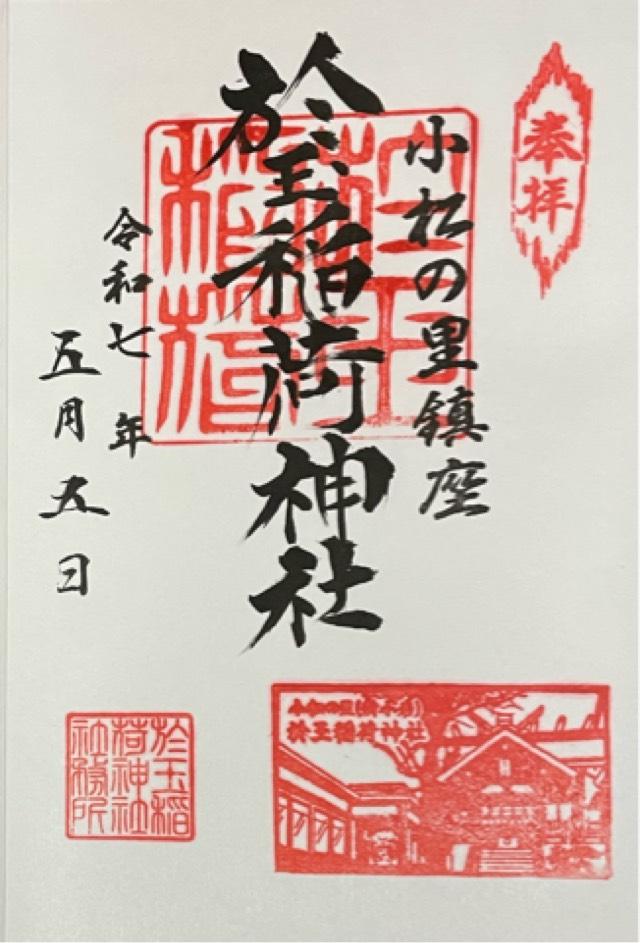 奉拝
小松の里鎮座
於玉稲荷神社
令和七年
五月五日
於玉稲荷
於玉稲荷神社
於玉稲
荷神社
社務所